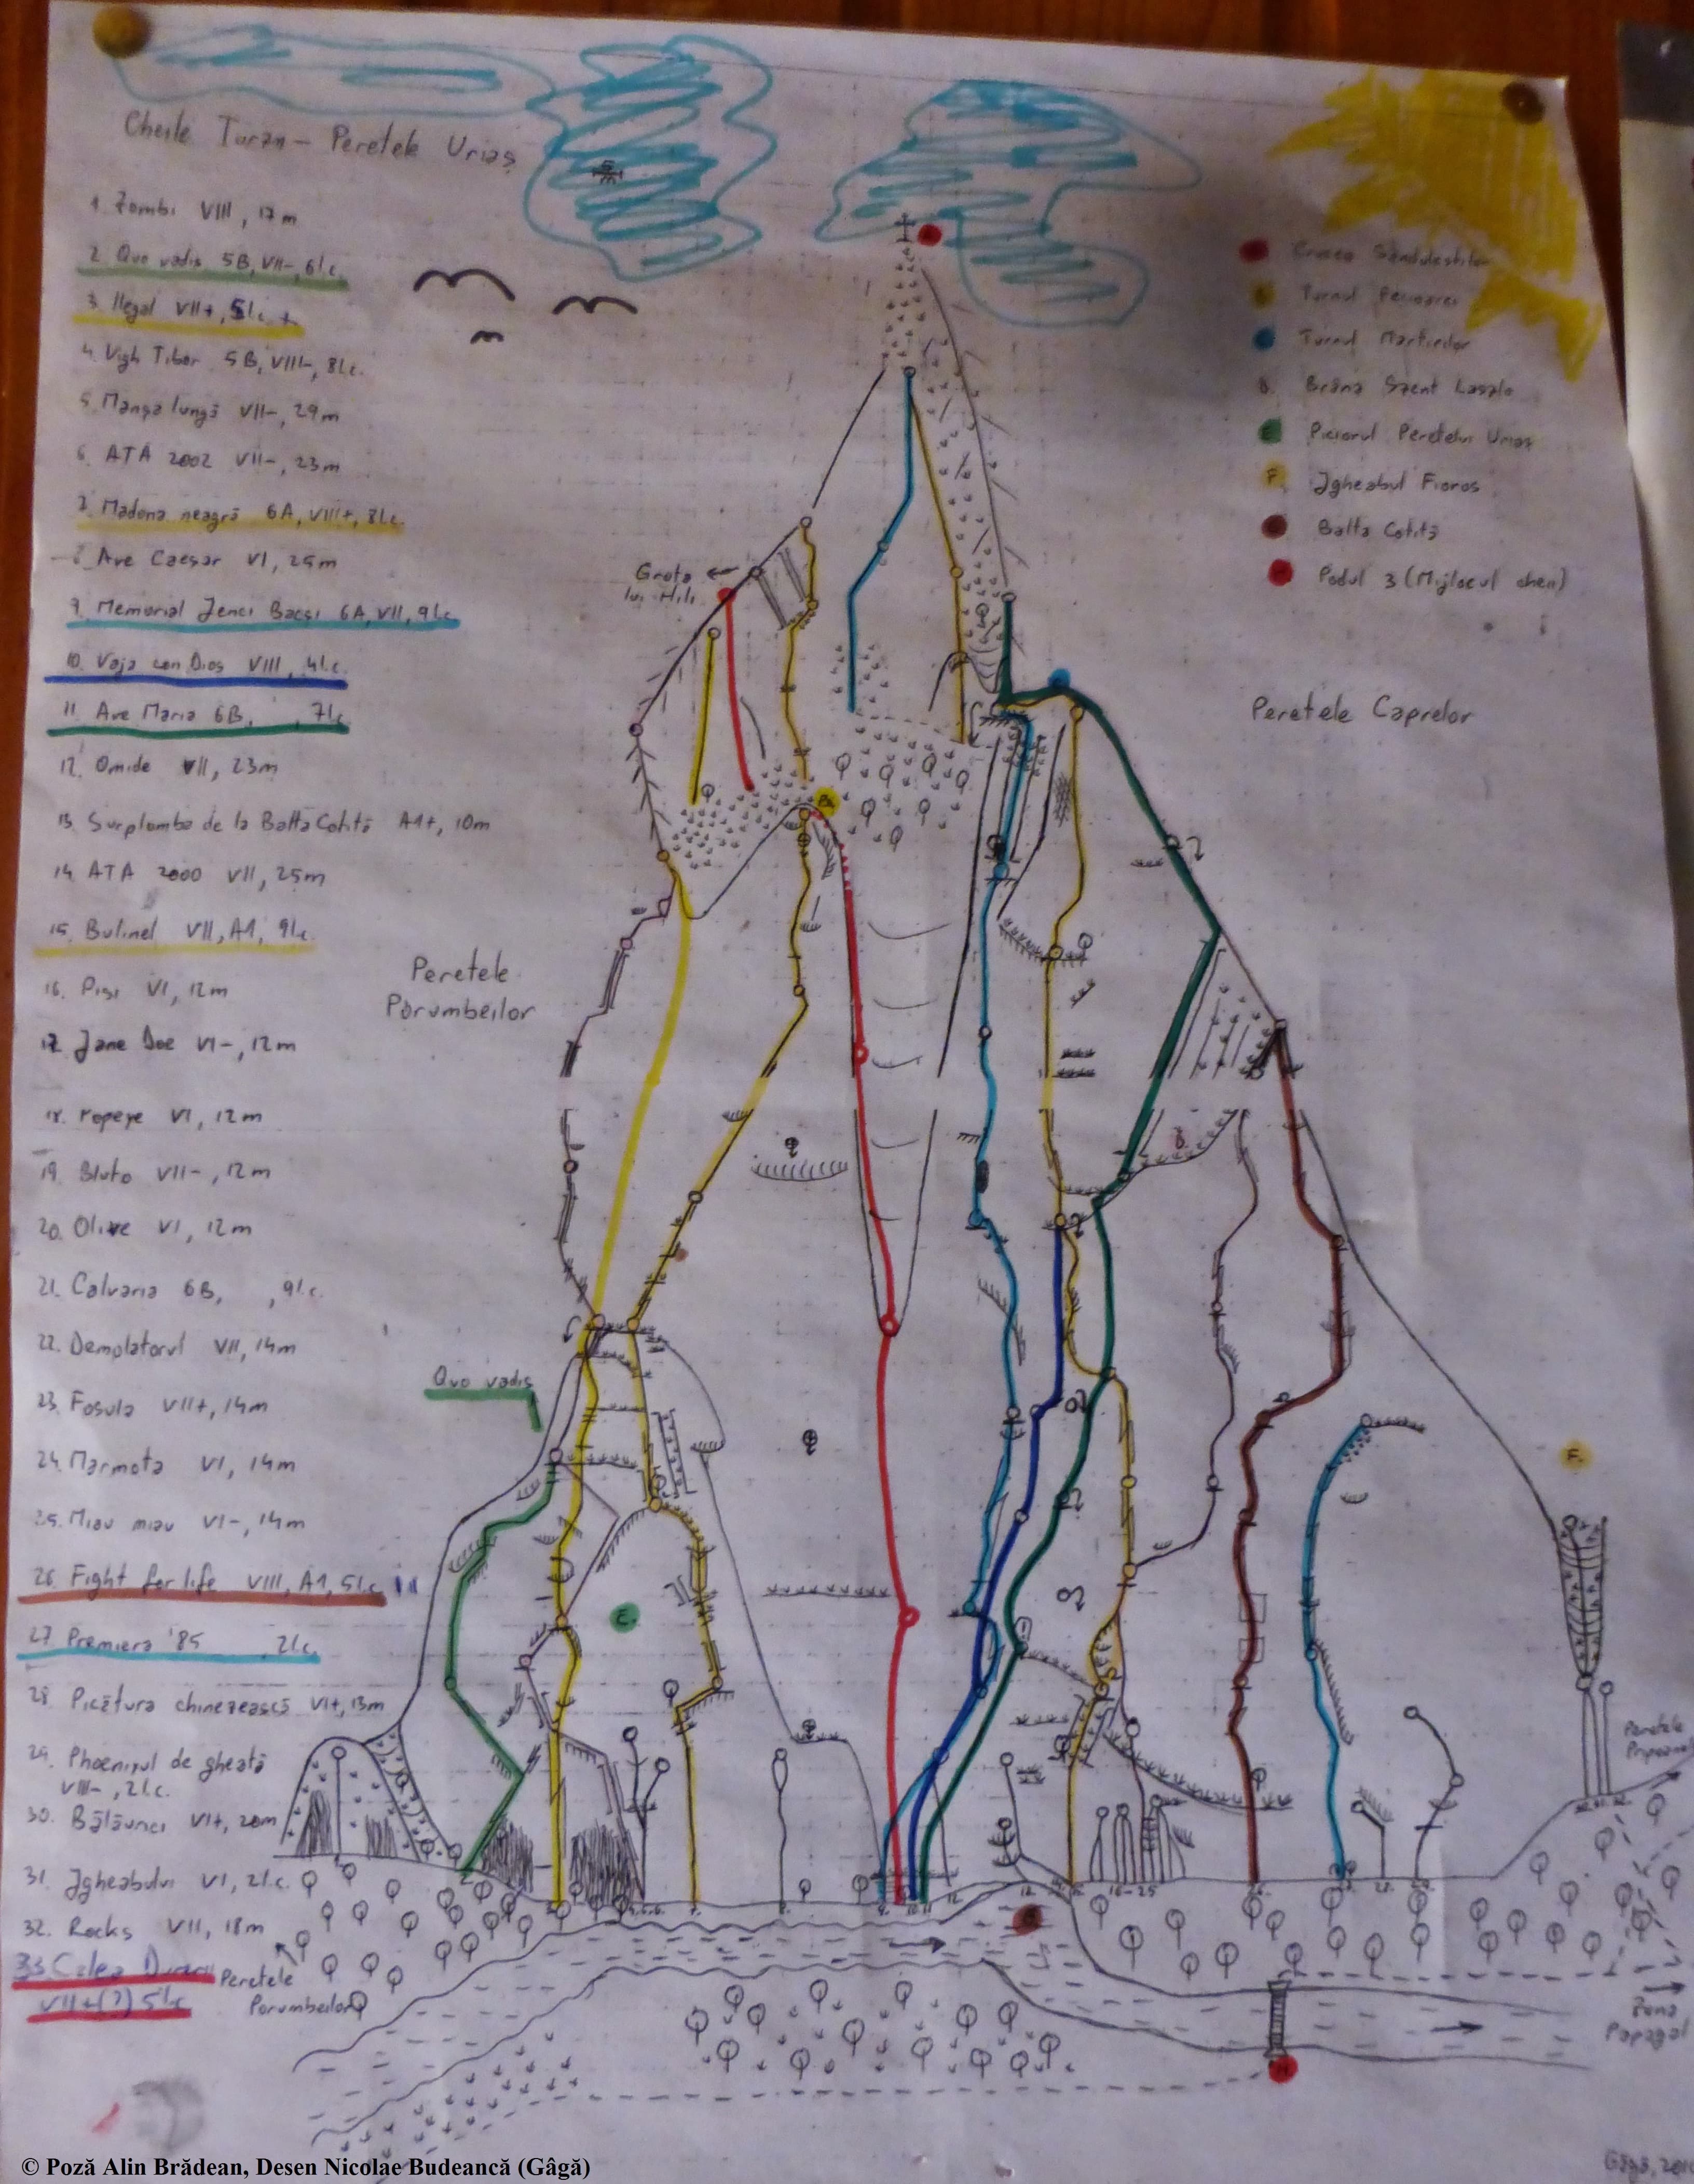 Cheile Turzii – Peretele Uriaș
1. Zombi VIII, 17m
2. Quo vadis 5B, VII-, 6l.c.
3. Ilegal VII+, 5l.c. +
4. Vigh Tibor 5B, VIII-, 8l.c.
5. Manșa lungă VII-, 29m
6. ATA 2002 VII-, 23m
7. Madona neagră 6A, VIII+, 8l.c.
8. Ave Caesar VI, 25m
9. Memorial Jenci Bacsi 6A, VII, 9l.c.
10. Vaja con Dios VIII, 4l.c.
11. Ave Maria 6B, , 7l.c
12. Omide VII, 23m
13. Surplomba de la Balta Cotită A1+, 10m
14. ATA 2000 VII, 25m
15. Bulinel VII, A1, 9l.c.
16. Pisi VI, 12m
17. Jane Doe VI-, 12m
18. Popeye VI, 12m
19. Bluto VII-, 12m
20. Olive VI, 12m
21. Calvaria 6B, , 9l.c.
22. Demolatorul VII, 14m
23. Fosula VII+, 14m
24. Marmota VI, 14m
25. Miau miau VI-, 14m
26. Fight for life VIII, A1, 5l.c.
27. Premiera '85 2l.c.
28. Picătura chinezească VI+, 13m
29. Phoenixul de gheață
VIII-, 2l.c.
30. Bălăurici VI+, 20m
31. Jgheabului VI, 2l.c.
32. Rocks VII, 18m
33. Calea
VII+(?) 5lc
Peretele
Porumbeilor
Crucea Săndulestilor
Turnul
Turnul Martirilor
B. Brâna Szent Laszlo
E Piciorul Peretelui Uriaș
F. Jgheabul Fioros
Balta Cotită
Podul 3 (Mijlocul cheii)
Grota
lui Hili
Peretele Caprelor
Peretele
Porumbeilor
Quo vadis
B
E.
F.
Peretele
16-25
Zona
Papagal
© Poză Alin Brădean, Desen Nicolae Budeancă (Gâgă)